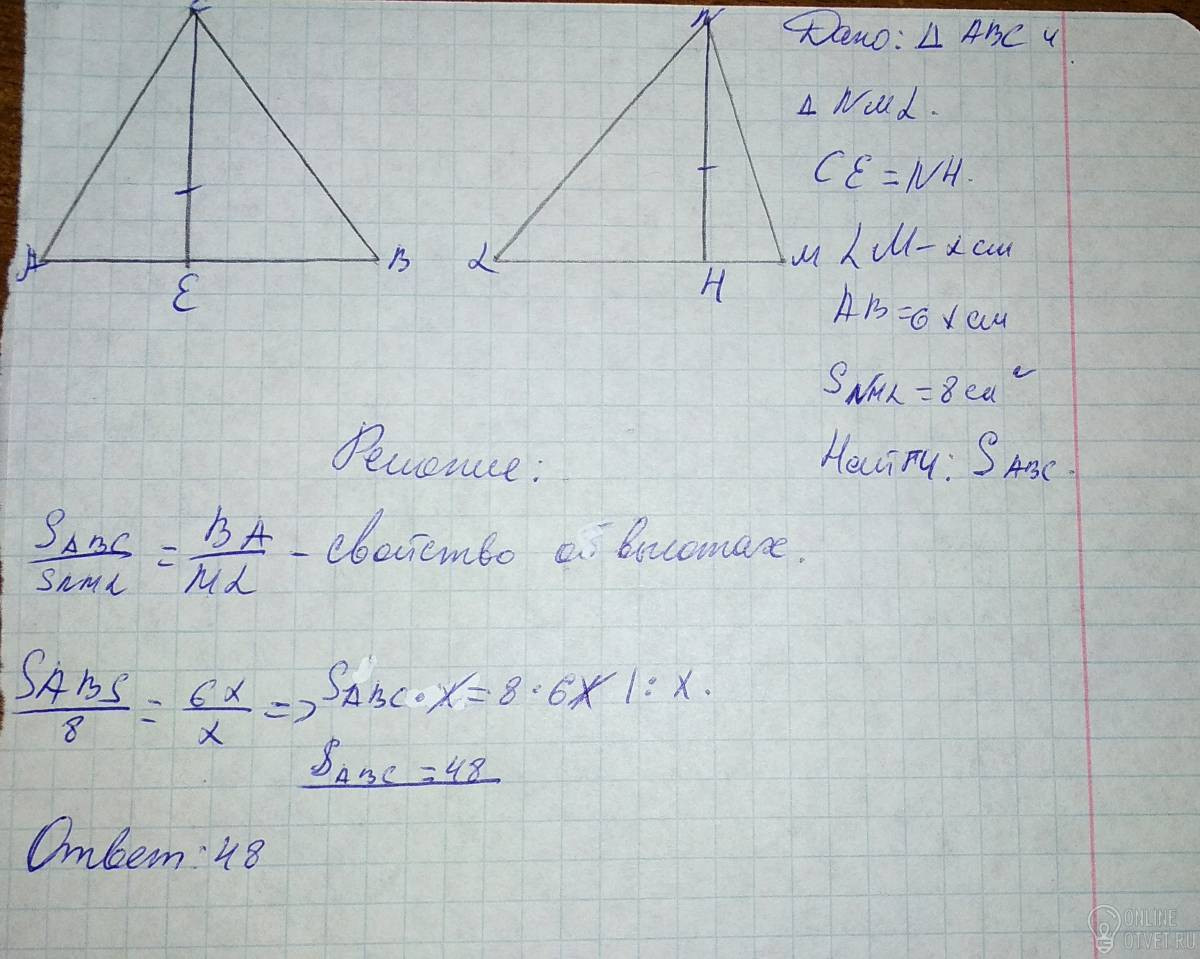 C
A
E
B
N
L
H
M
Дано: Δ ABC и
Δ NML.
CE = NH.
LM - x см
AB = 6x см
S NML = 8 см²
Найти: S ABC.
Решение:
S ABC / S NML = BA / ML - свойство о высотах.
S ABS / 8 = 6x / x => S ABC · x = 8 · 6x | : x.
S ABC = 48
Ответ: 48
ONLINE
OTVET.RU